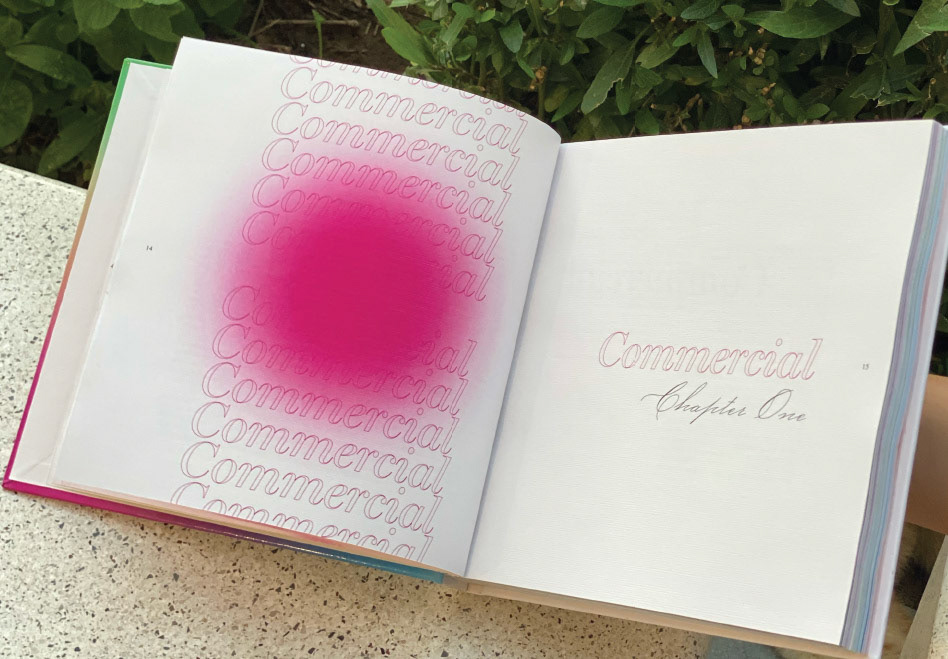 Commercial
Commercial
Commercial
Commercial
Commercial
Commercial
Commercial
Commercial
Commercial
Commercial
Commercial
Commercial
14
Commercial
Chapter One
15